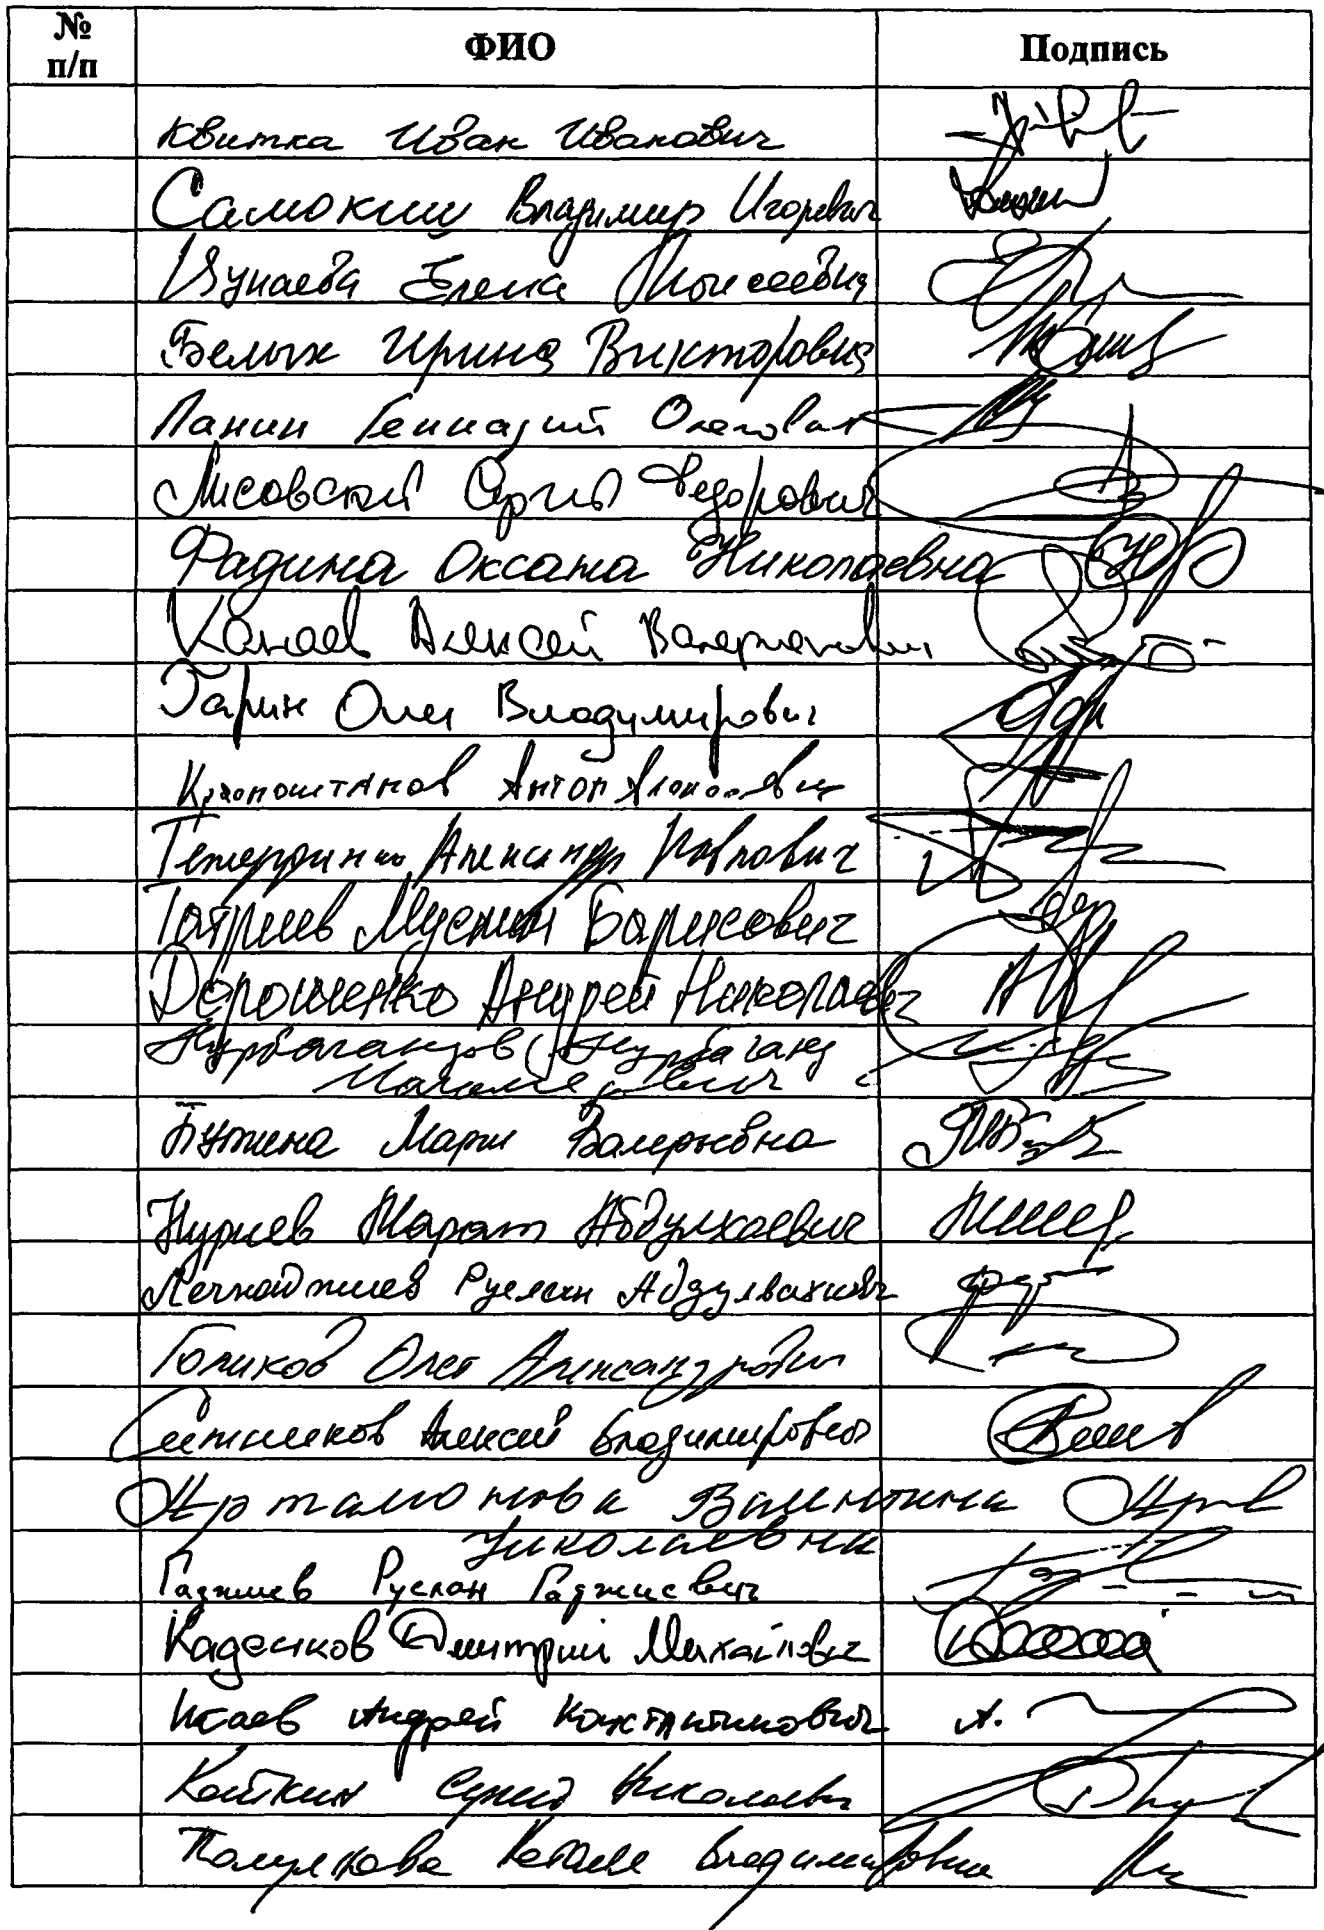 № п/п ФИО Подпись
Квитка Иван Иванович
Самокиш Владимир Игоревич
Цунаева Елена Моисеевна
Белых Ирина Викторовна
Панин Геннадий Олегович
Лисовский Сергей Федорович
Фадина Оксана Николаевна
Канаев Алексей Валерианович
Гарин Олег Владимирович
Антон Алексеевич
Александр Павлович
Татриев Муслим Барисович
Дорошенко Андрей Николаевич
Нурбагандов Нурбаганд
Магомедович
Бутина Мария Валерьевна
Нуриев Марат Абдулхаевич
Руслан Абдулвахабович
Голиков Олег Александрович
Ситников Алексей Владимирович
Артамонова Валентина
Николаевна
Гаджиев Руслан Гаджиевич
Каденков Дмитрий Михайлович
Исаев Андрей Константинович
Коткин Сергей Николаевич
Наталья Владимировна